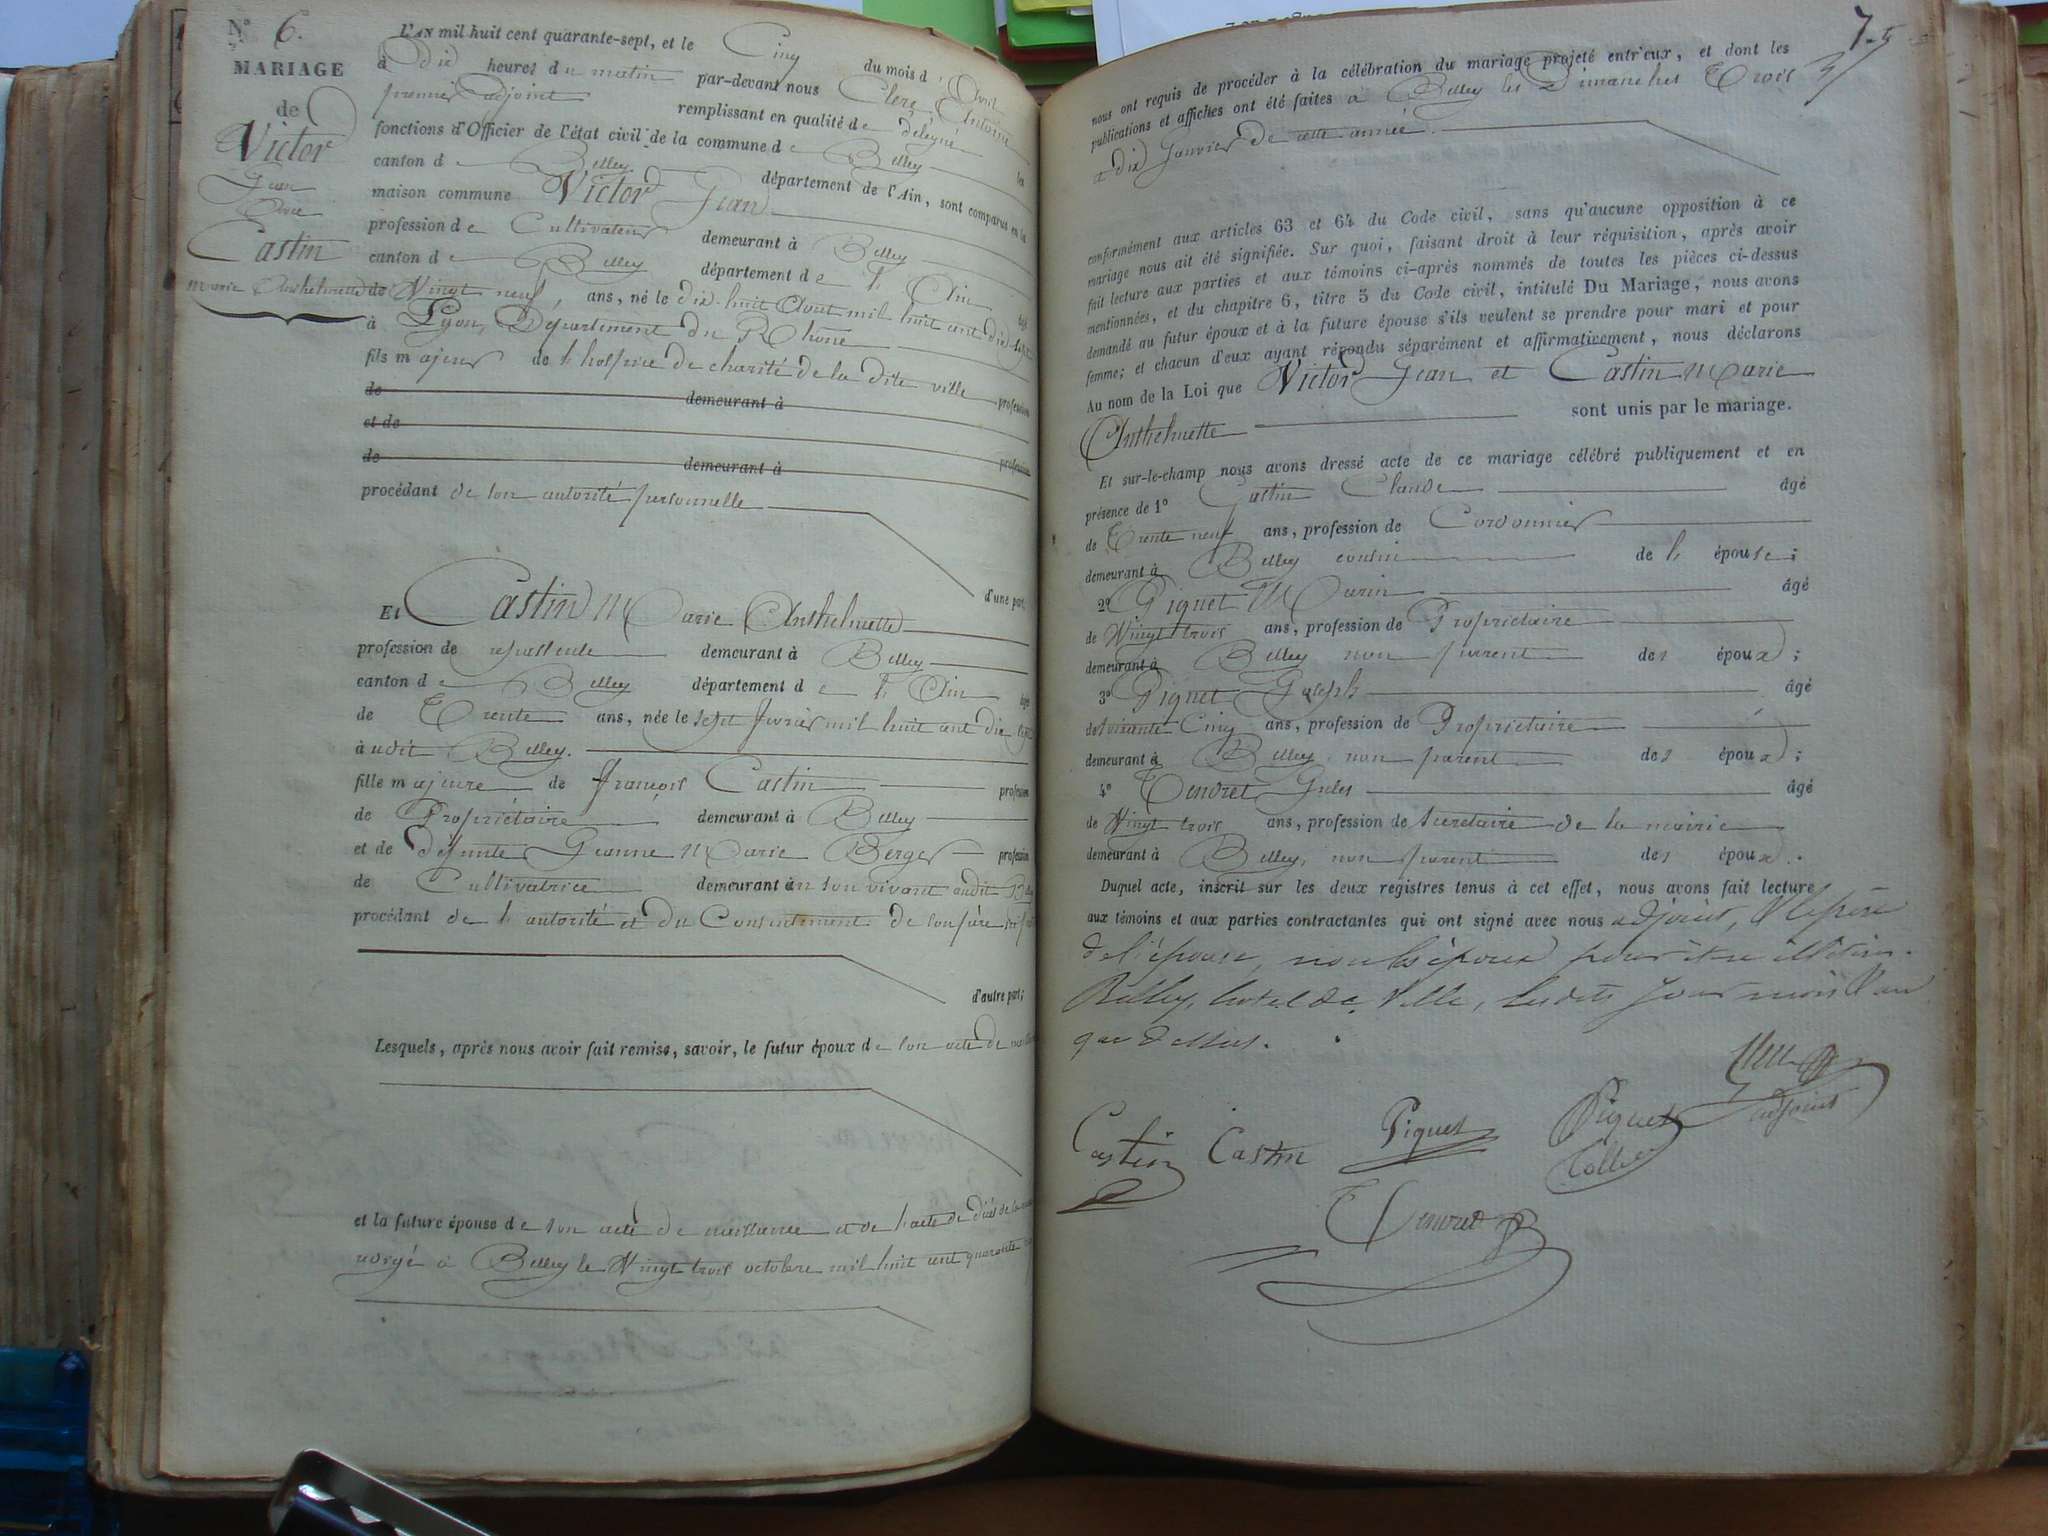 N.° 6.
MARIAGE
de
Victor
Jean
Avec
Castin
Marie Anthelmette
L'AN mil huit cent quarante-sept, et le Cinq du mois d'Avril
à Dix heures du matin par-devant nous Clerc Antoine
premier adjoint remplissant en qualité de délégué les
fonctions d'Officier de l'état civil de la commune de Belley
canton de Belley département de l'Ain, sont comparus en la
maison commune Victor Jean
profession de Cultivateur demeurant à Belley
canton de Belley département de l'Ain âgé
de Vingt neuf, ans, né le dix-huit Aout mil huit cent dix sept
à Lyon, Département du Rhône
fils majeur de l'hospice de charité de la dite ville profession
de demeurant à
et de profession
de demeurant à
procédant de son autorité personnelle
d'une part;
Et Castin Marie Anthelmette
profession de repasseuse demeurant à Belley
canton de Belley département de l'Ain âgée
de Trente ans, née le sept février mil huit cent dix sept
à udit Belley.
fille majeure de françois Castin profession
de Propriétaire demeurant à Belley
et de défunte Jeanne Marie Berger profession
de Cultivatrice demeurant en son vivant audit Belley
procédant de l'autorité et du Consentement de son père
d'autre part;
Lesquels, après nous avoir fait remise, savoir, le futur époux de son acte de
et la future épouse de son acte de naissance et de l'acte de décès de sa
à Belley le Vingt trois octobre mil huit cent quarante
7-5
nous ont requis de procéder à la célébration du mariage projeté entr'eux, et dont les
publications et affiches ont été faites à Belley les Dimanches Trois
et dix Janvier de cette année.
conformément aux articles 63 et 64 du Code civil, sans qu'aucune opposition à ce
mariage nous ait été signifiée. Sur quoi, faisant droit à leur réquisition, après avoir
fait lecture aux parties et aux témoins ci-après nommés de toutes les pièces ci-dessus
mentionnées, et du chapitre 6, titre 5 du Code civil, intitulé Du Mariage, nous avons
demandé au futur époux et à la future épouse s'ils veulent se prendre pour mari et pour
femme; et chacun d'eux ayant répondu séparément et affirmativement, nous déclarons
Au nom de la Loi que Victor Jean et Castin Marie
Anthelmette sont unis par le mariage.
Et sur-le-champ nous avons dressé acte de ce mariage célébré publiquement et en
présence de 1° Castin Claude âgé
de Trente neuf ans, profession de Cordonnier
demeurant à Belley cousin de l'épouse;
2° Piguet Marin âgé
de Vingt trois ans, profession de Propriétaire
demeurant à Belley non parent des époux;
3° Piguet Joseph âgé
de soixante Cinq ans, profession de Propriétaire
demeurant à Belley non parent des époux;
4° Tendret Jules âgé
de Vingt trois ans, profession de secrétaire de la mairie
demeurant à Belley, non parent des époux.
Duquel acte, inscrit sur les deux registres tenus à cet effet, nous avons fait lecture
aux témoins et aux parties contractantes qui ont signé avec nous adjoint, & le père
de l'épouse, non les époux pour être illétirés.
Belley, hotel de Ville, lesdits jour mois & an
que dessus.
adjoint
Castin Castin Piguet Piguet
Tendret